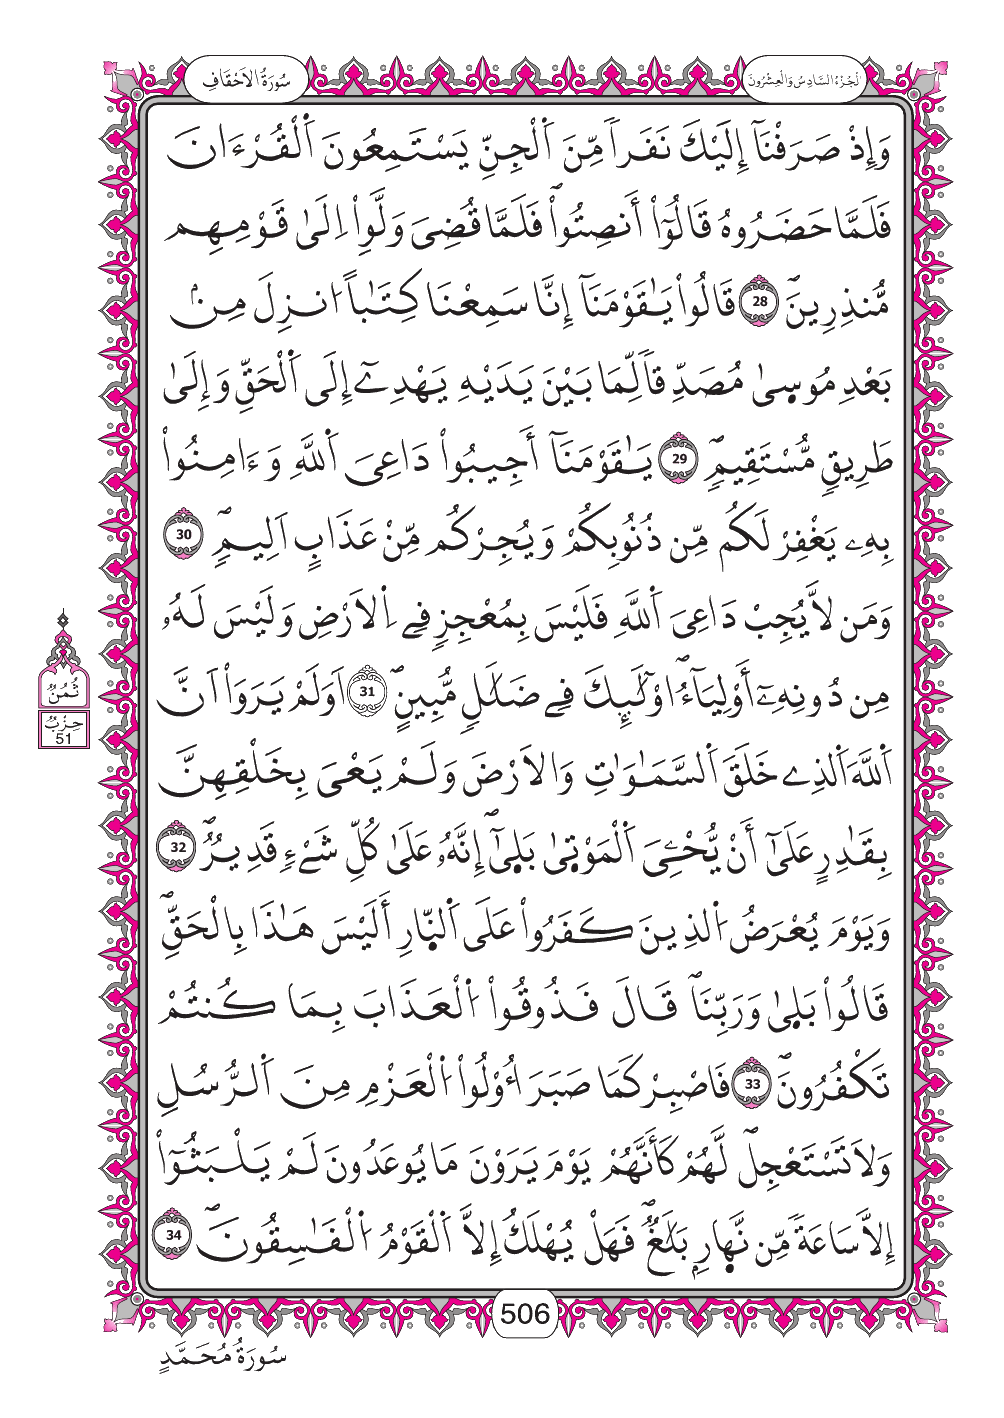 سُورَةُ الْأَحْقَافِ
الْجُزْءُ السَّادِسُ وَالْعِشْرُونَ
وَإِذْ صَرَفْنَآ إِلَيْكَ نَفَراٗ مِّنَ اَ۬لْجِنِّ يَسْتَمِعُونَ اَ۬لْقُرْءَانَ
فَلَمَّا حَضَرُوهُ قَالُوٓاْ أَنصِتُواْۖ فَلَمَّا قُضِيَ وَلَّوِاْ اِلَىٰ قَوْمِهِم
مُّنذِرِينَۖ 28 قَالُواْ يَٰقَوْمَنَآ إِنَّا سَمِعْنَا كِتَٰباً ا۟نزِلَ مِنۢ
بَعْدِ مُوس۪ىٰ مُصَدِّقاٗ لِّمَا بَيْنَ يَدَيْهِ يَهْدِےٓ إِلَى اَ۬لْحَقِّ وَإِلَىٰ
طَرِيقٖ مُّسْتَقِيمٖۖ 29 يَٰقَوْمَنَآ أَجِيبُواْ دَاعِيَ اَ۬للَّهِ وَءَامِنُواْ
بِهِۦ يَغْفِرْ لَكُم مِّن ذُنُوبِكُمْ وَيُجِرْكُم مِّنْ عَذَابٍ اَلِيمٖۖ 30
وَمَن لَّا يُجِبْ دَاعِيَ اَ۬للَّهِ فَلَيْسَ بِمُعْجِزٖ فِے اِ۬لَارْضِ وَلَيْسَ لَهُۥ
مِن دُونِهِۦٓ أَوْلِيَآءُۖ ا۟وْلَٰٓئِكَ فِے ضَلَٰلٖ مُّبِينٍۖ 31 اَوَلَمْ يَرَوَاْ اَنَّ
اَ۬للَّهَ اَ۬لذِے خَلَقَ اَ۬لسَّمَٰوَٰتِ وَالَارْضَ وَلَمْ يَعْيَ بِخَلْقِهِنَّ
بِقَٰدِرٍ عَلَىٰٓ أَنْ يُّحْـِۧيَ اَ۬لْمَوْت۪ىٰ بَل۪ىٰٓۖ إِنَّهُۥ عَلَىٰ كُلِّ شَےْءٖ قَدِيرٞۖ 32
وَيَوْمَ يُعْرَضُ اُ۬لذِينَ كَفَرُواْ عَلَى اَ۬لنّ۪ارِ أَلَيْسَ هَٰذَا بِالْحَقِّۖ
قَالُواْ بَل۪ىٰ وَرَبِّنَاۖ قَالَ فَذُوقُواْ اُ۬لْعَذَابَ بِمَا كُنتُمْ
تَكْفُرُونَۖ 33 فَاصْبِرْ كَمَا صَبَرَ أُوْلُواْ اُ۬لْعَزْمِ مِنَ اَ۬لرُّسُلِ
وَلَا تَسْتَعْجِلۖ لَّهُمْ كَأَنَّهُمْ يَوْمَ يَرَوْنَ مَا يُوعَدُونَ لَمْ يَلْبَثُوٓاْ
إِلَّا سَاعَةٗ مِّن نَّه۪ارِۢ بَلَٰغٞۖ فَهَلْ يُهْلَكُ إِلَّا اَ۬لْقَوْمُ اُ۬لْفَٰسِقُونَۖ 34
ثُمُنٌ
حِزْبٌ
51
506
سُورَةُ مُحَمَّدٍ